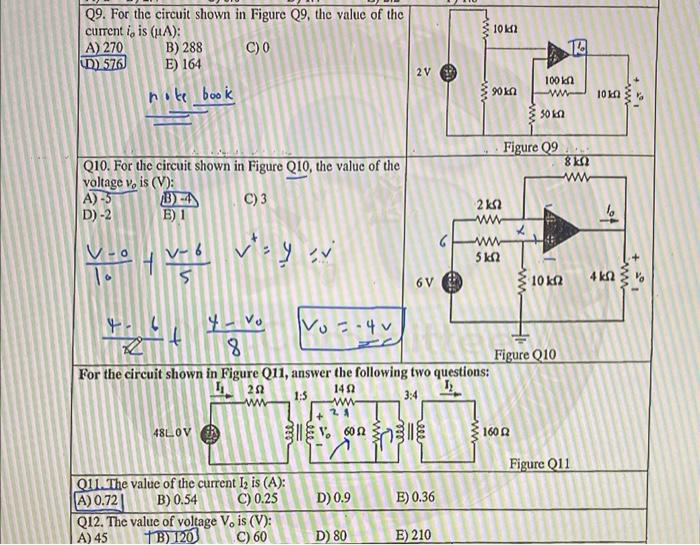 Q9. For the circuit shown in Figure Q9, the value of the
current i₀ is (μA):
A) 270 B) 288 C) 0
D) 576 E) 164
note book
2 V
10 kΩ
90 kΩ
i₀
100 kΩ
50 kΩ
10 kΩ
+
v₀
-
Figure Q9
Q10. For the circuit shown in Figure Q10, the value of the
voltage v₀ is (V):
A) -5 B) -4 C) 3
D) -2 E) 1
V-0/10 + V-6/5 V⁺ = 4 = V⁻
4-6/2 + 4-V₀/8 V₀ = -4 V
8 kΩ
2 kΩ
5 kΩ
6
6 V
10 kΩ
i₀
4 kΩ
+
v₀
-
Figure Q10
For the circuit shown in Figure Q11, answer the following two questions:
I₁ 2 Ω 1:5 14 Ω 3:4 I₂
48∟0 V
+
V₀
-
2A
60 Ω
160 Ω
Figure Q11
Q11. The value of the current I₂ is (A):
A) 0.72 B) 0.54 C) 0.25 D) 0.9 E) 0.36
Q12. The value of voltage V₀ is (V):
A) 45 B) 120 C) 60 D) 80 E) 210